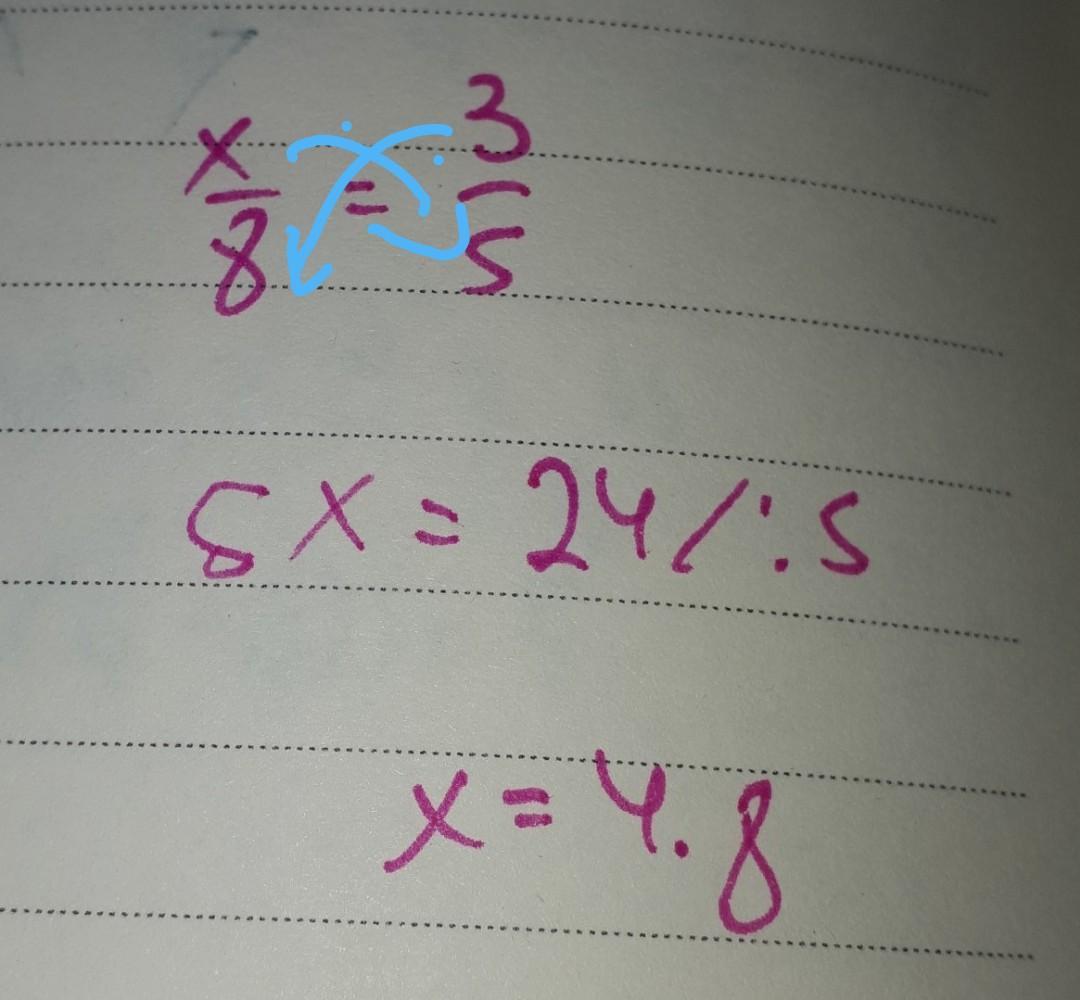 x/8 = 3/5
5x = 24 / :5
x = 4.8